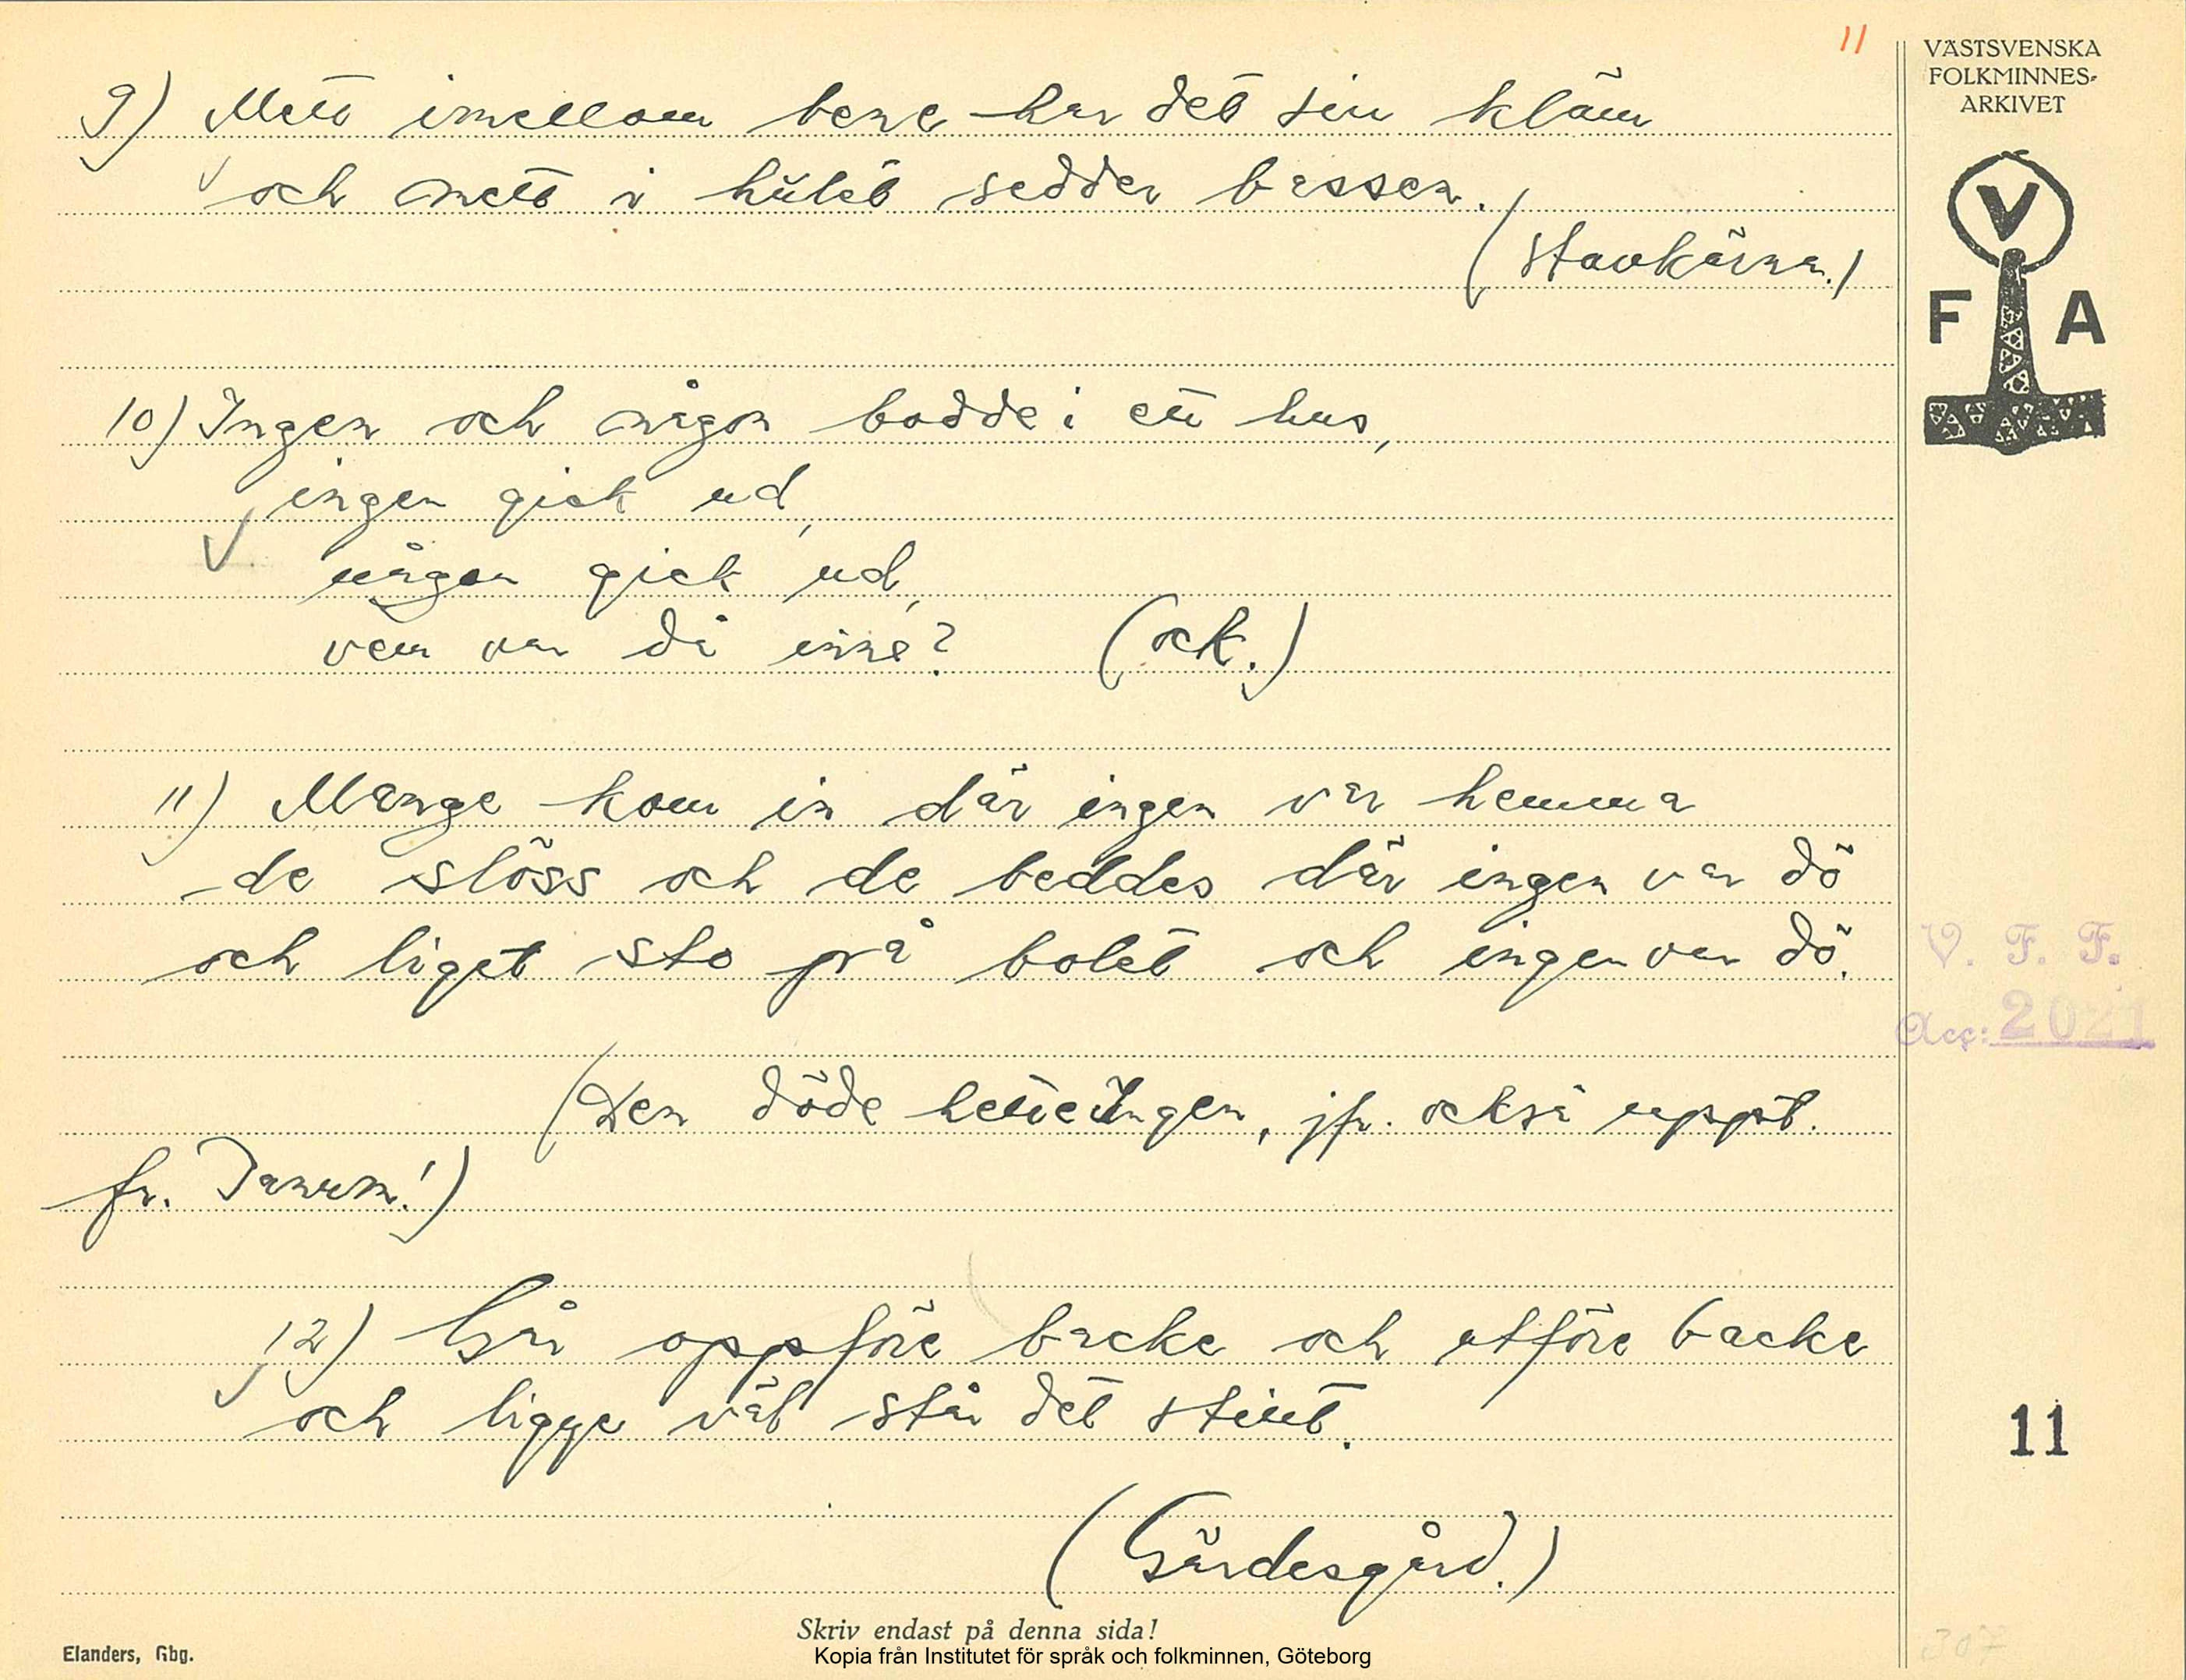 11
VÄSTSVENSKA
FOLKMINNES-
ARKIVET
V
F A
9) Mett imellom bene har det sin kläm
och mett i hület sedder bassen.
(Stavkärna.)
10) Ingen och någon bodde i ett hus,
ingen gick ud,
någon gick ud,
vem var då inne? (ock.)
11) Mange kom in där ingen var hemma
de slöss och de beddes där ingen var dö
och liget sto på bolet och ingen var dö.
(Den döde hette Ingen, jfr. också uppt.
fr. Tanum!)
12) Går oppföre backe och utföre backe
och ligge vät står det stint.
(Gärdesgård.)
V. F. F.
Acc: 2021
11
Skriv endast på denna sida!
Elanders, Gbg.
Kopia från Institutet för språk och folkminnen, Göteborg
307